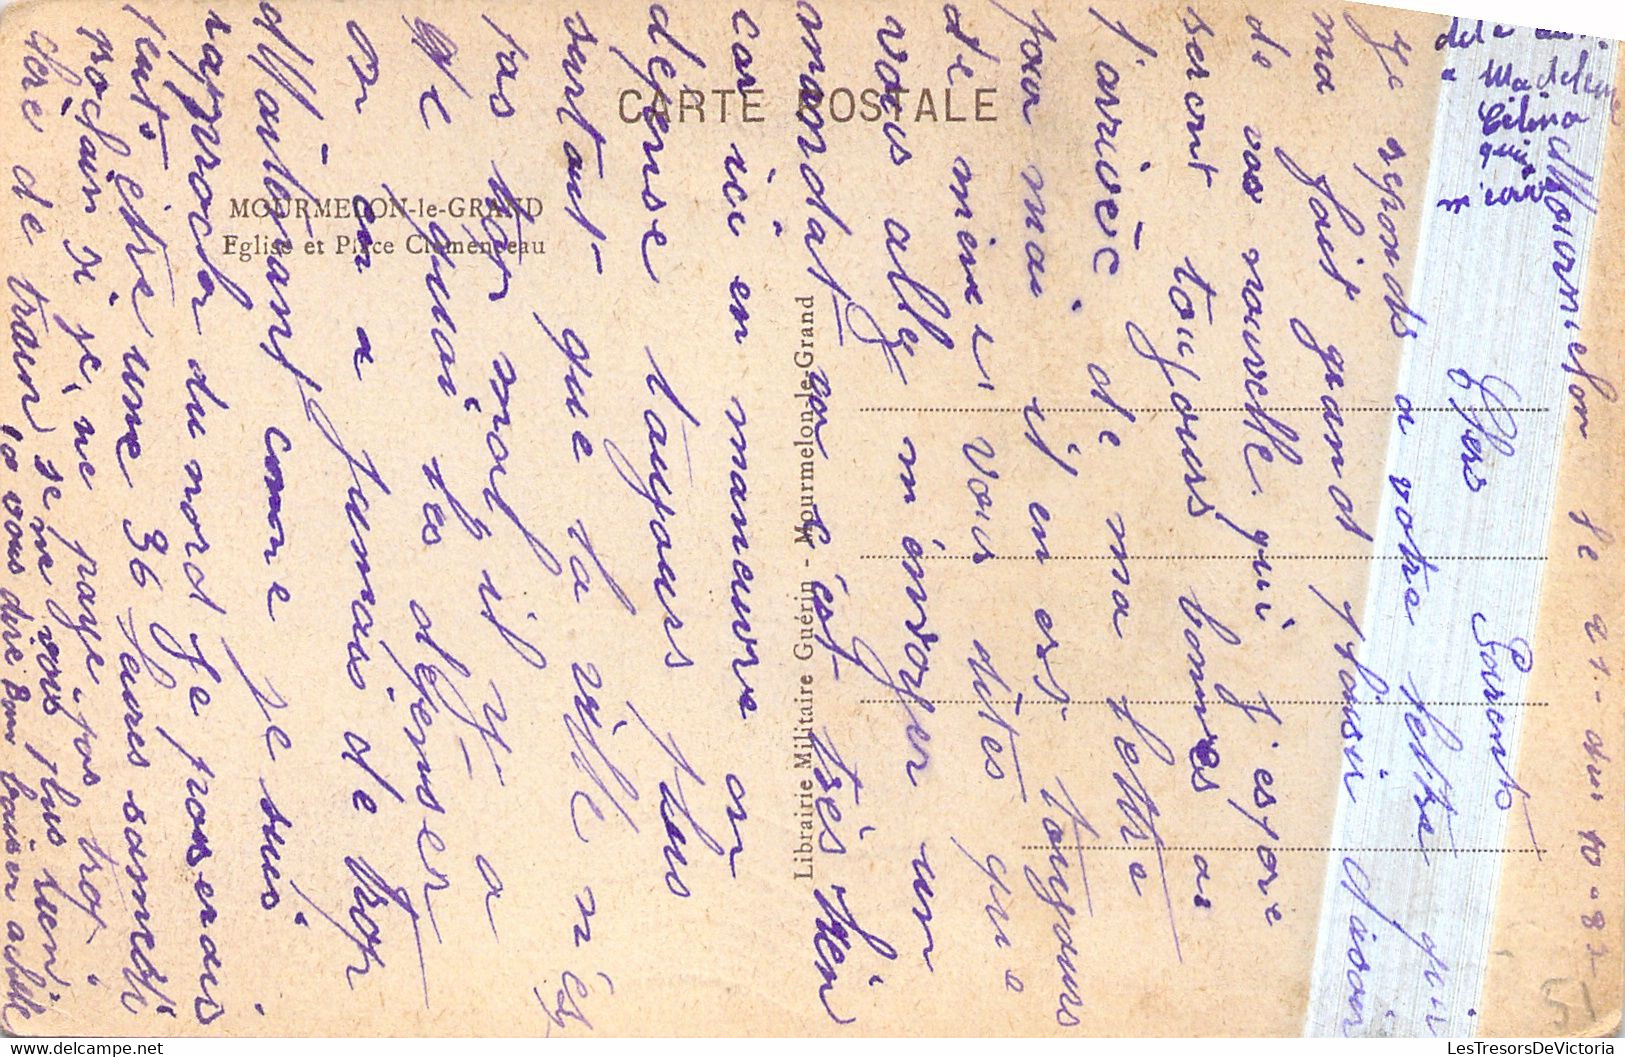 CARTE POSTALE
MOURMELON-le-GRAND
Eglise et Place Clemenceau
Librairie Militaire Guérin - Mourmelon-le-Grand
Mourmelon le 21-
Chers Parents
Je reponds a votre lettre qui
ma fait grand plaisir d'avoir
de vos nouvelle. qui j'espore
seront toujours bonnes a
l'arriveé de ma lettre
pour moi il en est toujours
de mime vous dites que
vous allez m'envoyer un
mandat va s'est très bien
car ici en maneuvre on
dépense toujours plus
surtout que la ville n'és
pas tro mal il y a
de quoi les dépenser
on en a jumais de trop
Maintenant come je suis
raprocher du nord je passerais
peut etre une 36 heures samedi
prochain si je ne paye pas trop
chère de train se na vous plus rien
a vous dire Bon baiser
Madeleine
Célina
51
LesTresorsDeVictoria.com